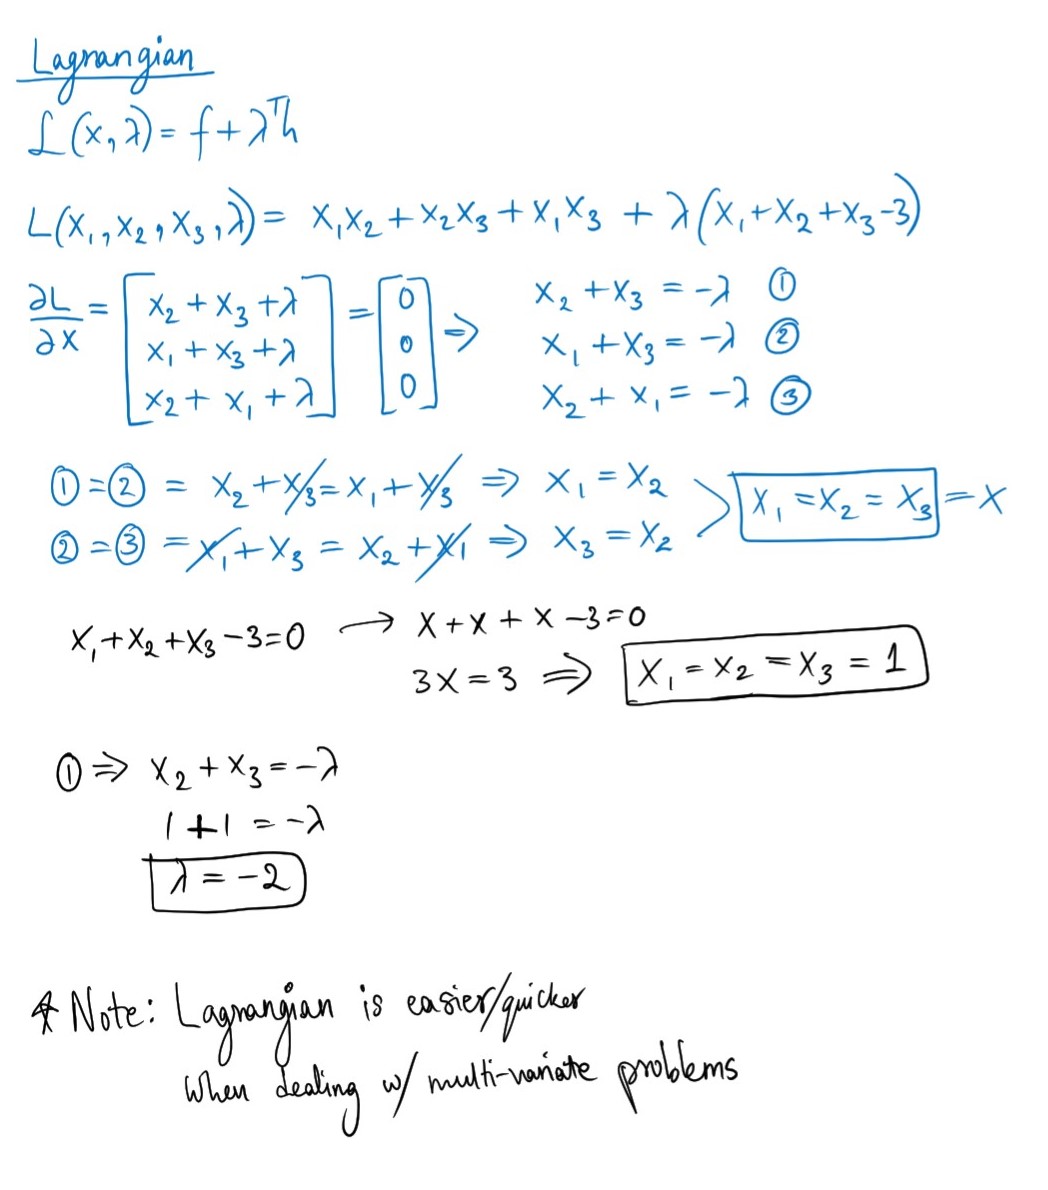 Lagrangian
ℒ(x,λ) = f + λᵀh
L(x₁, x₂, x₃, λ) = x₁x₂ + x₂x₃ + x₁x₃ + λ(x₁+x₂+x₃-3)
∂L/∂x = [x₂ + x₃ + λ; x₁ + x₃ + λ; x₂ + x₁ + λ] = [0; 0; 0] ⇒
x₂ + x₃ = -λ ①
x₁ + x₃ = -λ ②
x₂ + x₁ = -λ ③
① = ② = x₂ + x₃ = x₁ + x₃ ⇒ x₁ = x₂
② = ③ = x₁ + x₃ = x₂ + x₁ ⇒ x₃ = x₂
> x₁ = x₂ = x₃ = x
x₁ + x₂ + x₃ - 3 = 0 → x + x + x - 3 = 0
3x = 3 ⇒ x₁ = x₂ = x₃ = 1
① ⇒ x₂ + x₃ = -λ
1 + 1 = -λ
λ = -2
* Note: Lagrangian is easier/quicker
when dealing w/ multi-variate problems